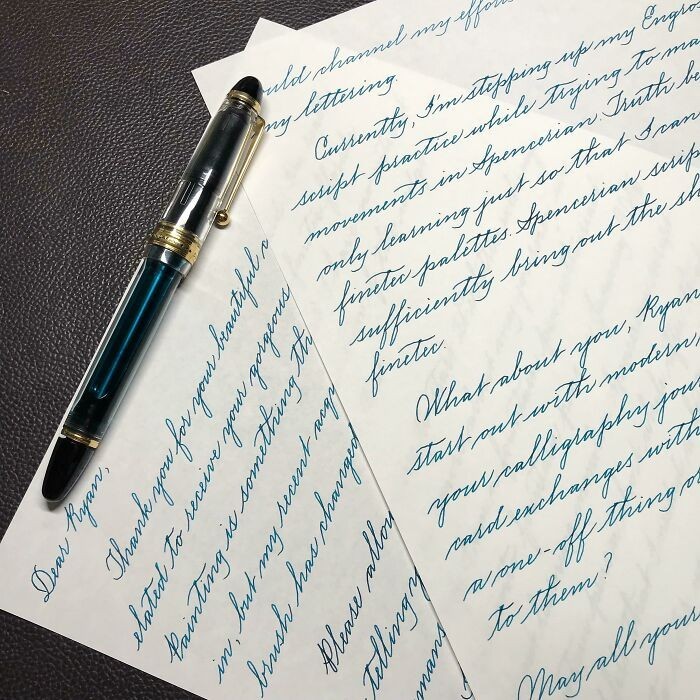 Dear Ryan,
Thank you for your beautiful
elated to receive your gorgeous
Painting is something
in, but my recent
brush has changed
Please allow
telling
mans
would channel my effor
my lettering.
Currently, I'm stepping up my Engro
script practice while trying to ma
movements in Spencerian. Truth be
only learning just so that I can
finetec palettes. Spencerian scrip
sufficiently bring out the sh
finetec.
What about you, Ryan
start out with modern,
your calligraphy jou
card exchanges with
a one-off thing o
to them?
May all your